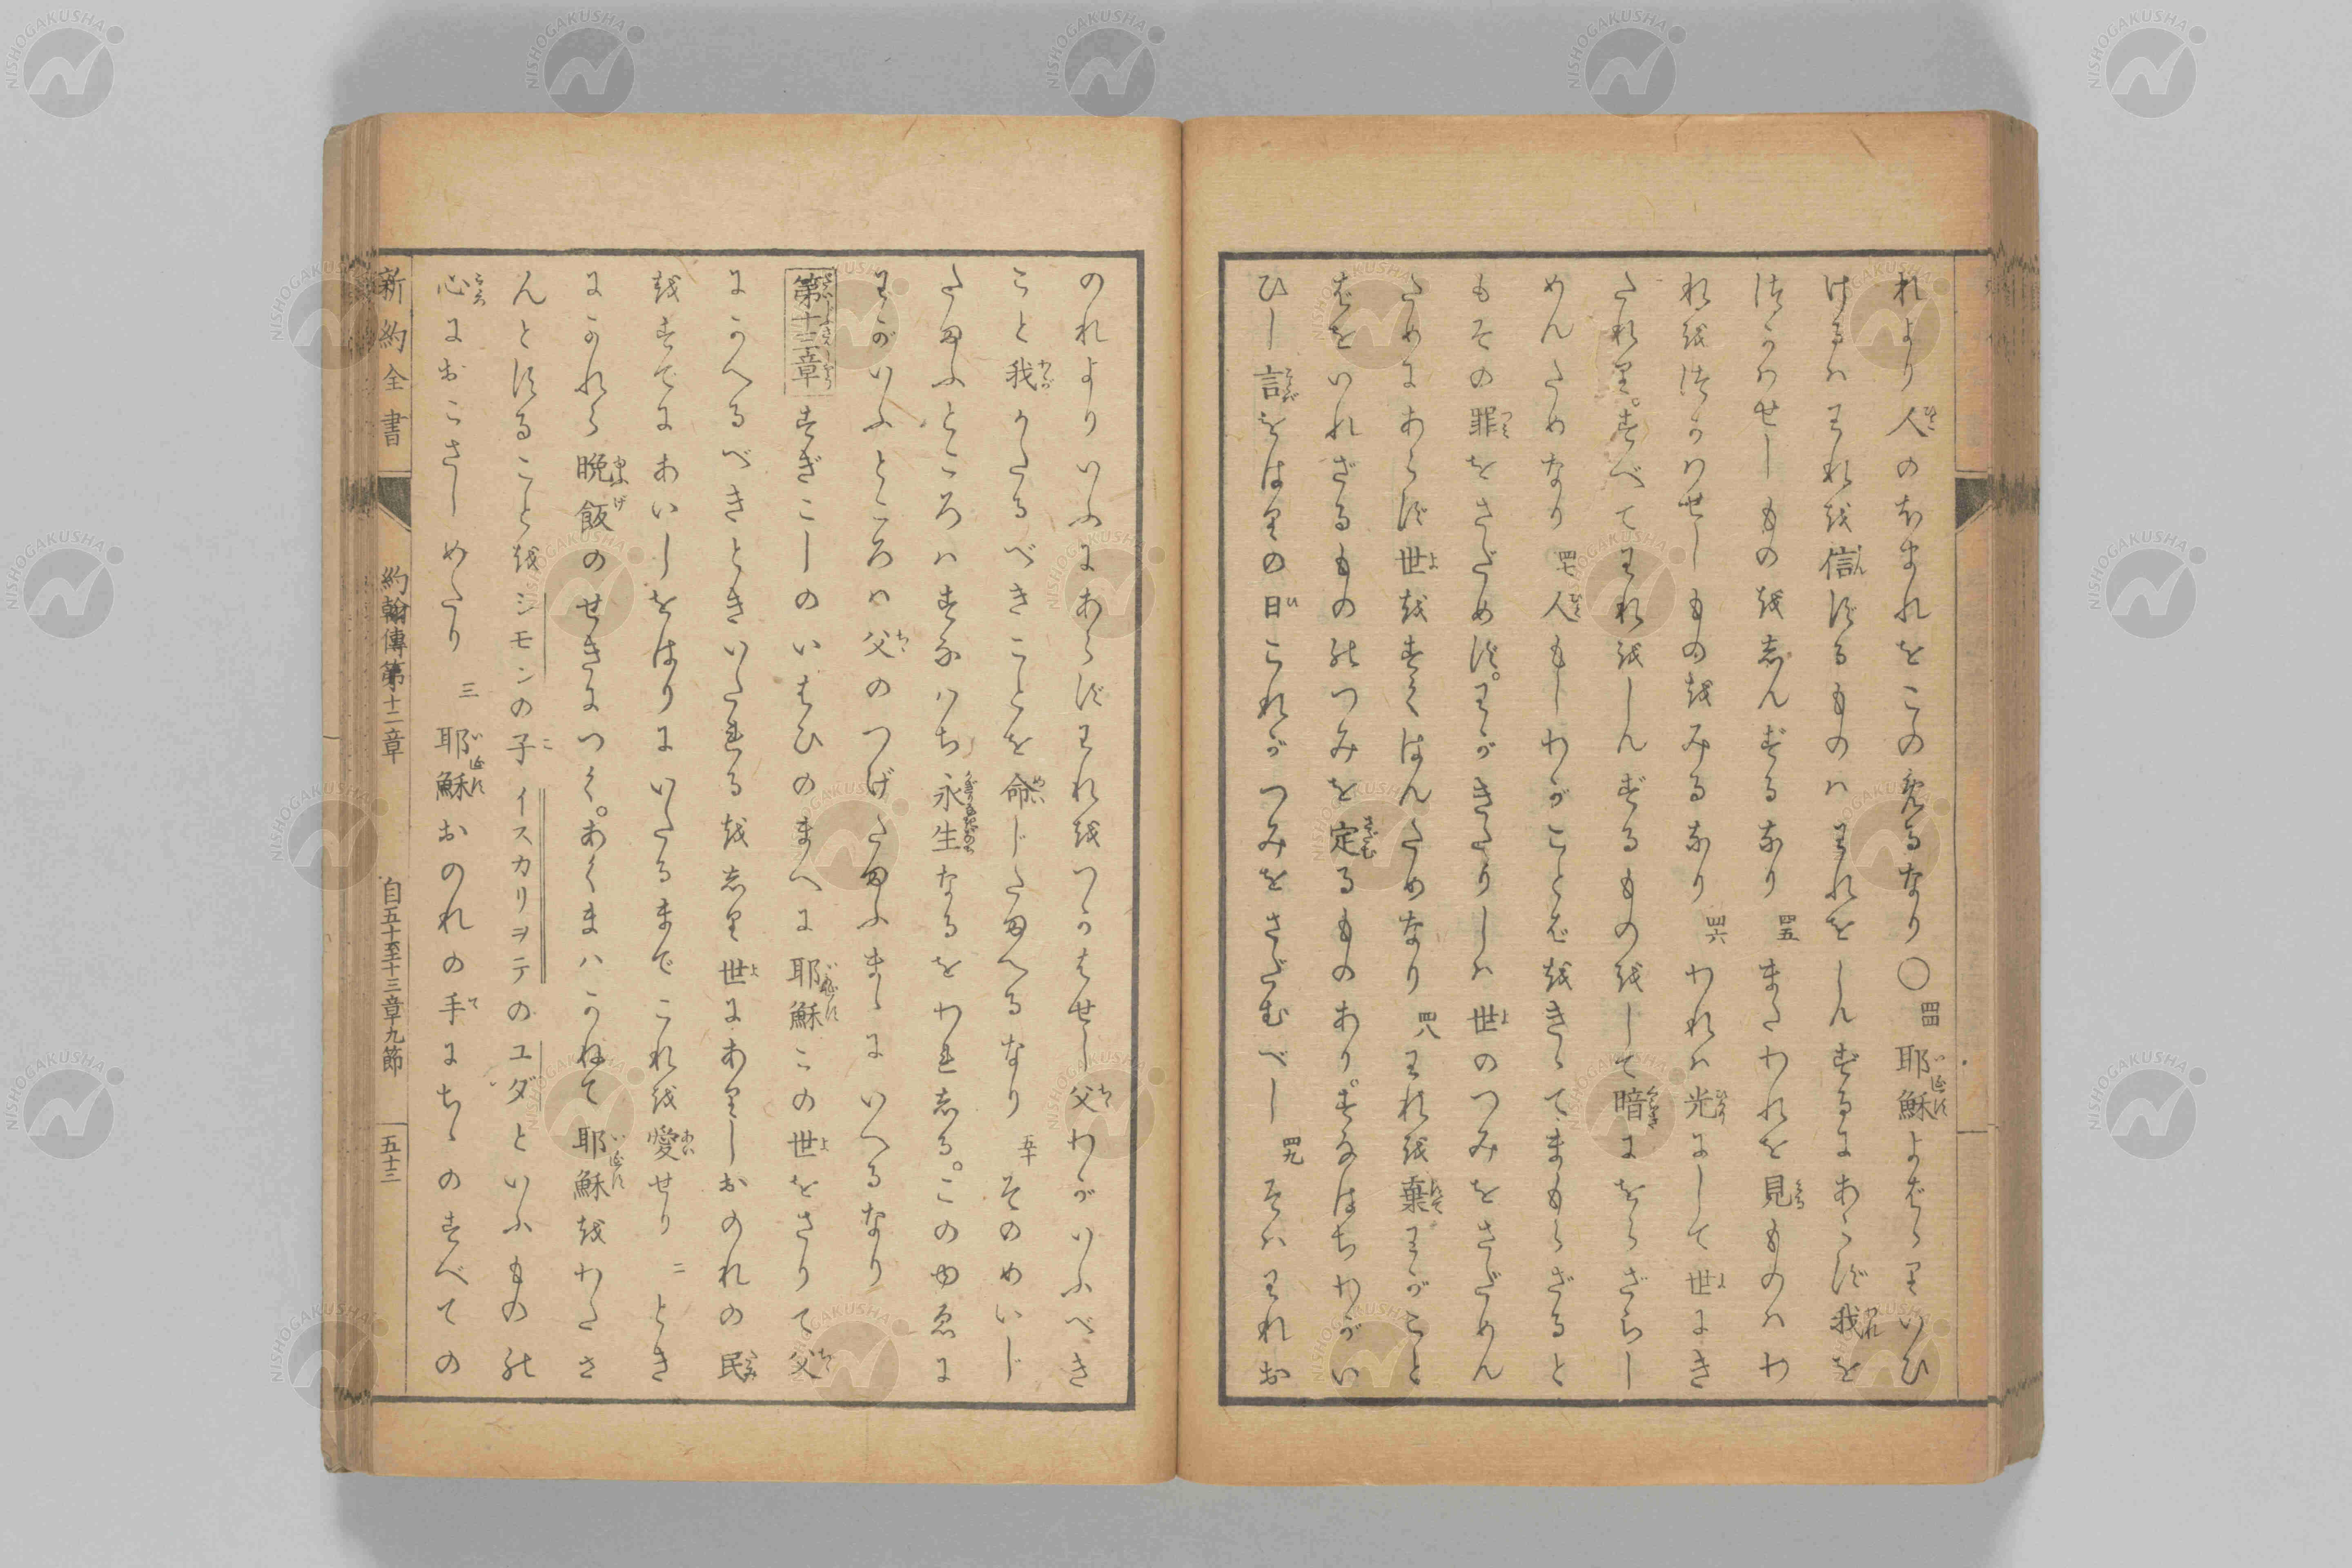 れより人のほまれをこのめるなり〇四四耶穌よばゝりいひ
けるハわれを信ずるものハわれをしんずるにあらず我を
つかハせしもの越志んずるなり四五またわれを見ものハわ
れをつかハせしもの越みるなり四六われハ光にして世にき
たれり。すべてわれをしんずるものをして暗にをらざらし
めんためなり四七人もしわがことば越きゝてまもらざると
もその罪をさだめず。わがきたりしハ世のつみをさだめん
ためにあらず世越すくはんためなり四八われを棄わがこと
ばをいれざるもののつみを定るものあり。すなはちわがい
ひし言をはりの日これがつみをさだむべし四九そハわれお
のれよりいふにあらずわれ越つかはせし父わがいふべき
こと我かたるべきことを命じたまへるなり五十そのめいじ
たまふところハすなハち永生なるをわれ志る。このゆゑに
わがいふところハ父のつげたまふまゝにいへるなり
第十三章すぎこしのいはひのまへに耶穌この世をさりて父
にかへるべきときいたれる越志り世にありしおのれの民
越すでにあいしをはりにいたるまでこれを愛せり二とき
にかれら晩飯のせきにつく。あくまハかねて耶穌越わたさ
んとすること越シモンの子イスカリヲテのユダといふものの
心におこさしめたり三耶穌おのれの手にちゝのすべての
新約全書 約翰傳第十二章 自五十至十三章九節 五十三
NISHOGAKUSHA